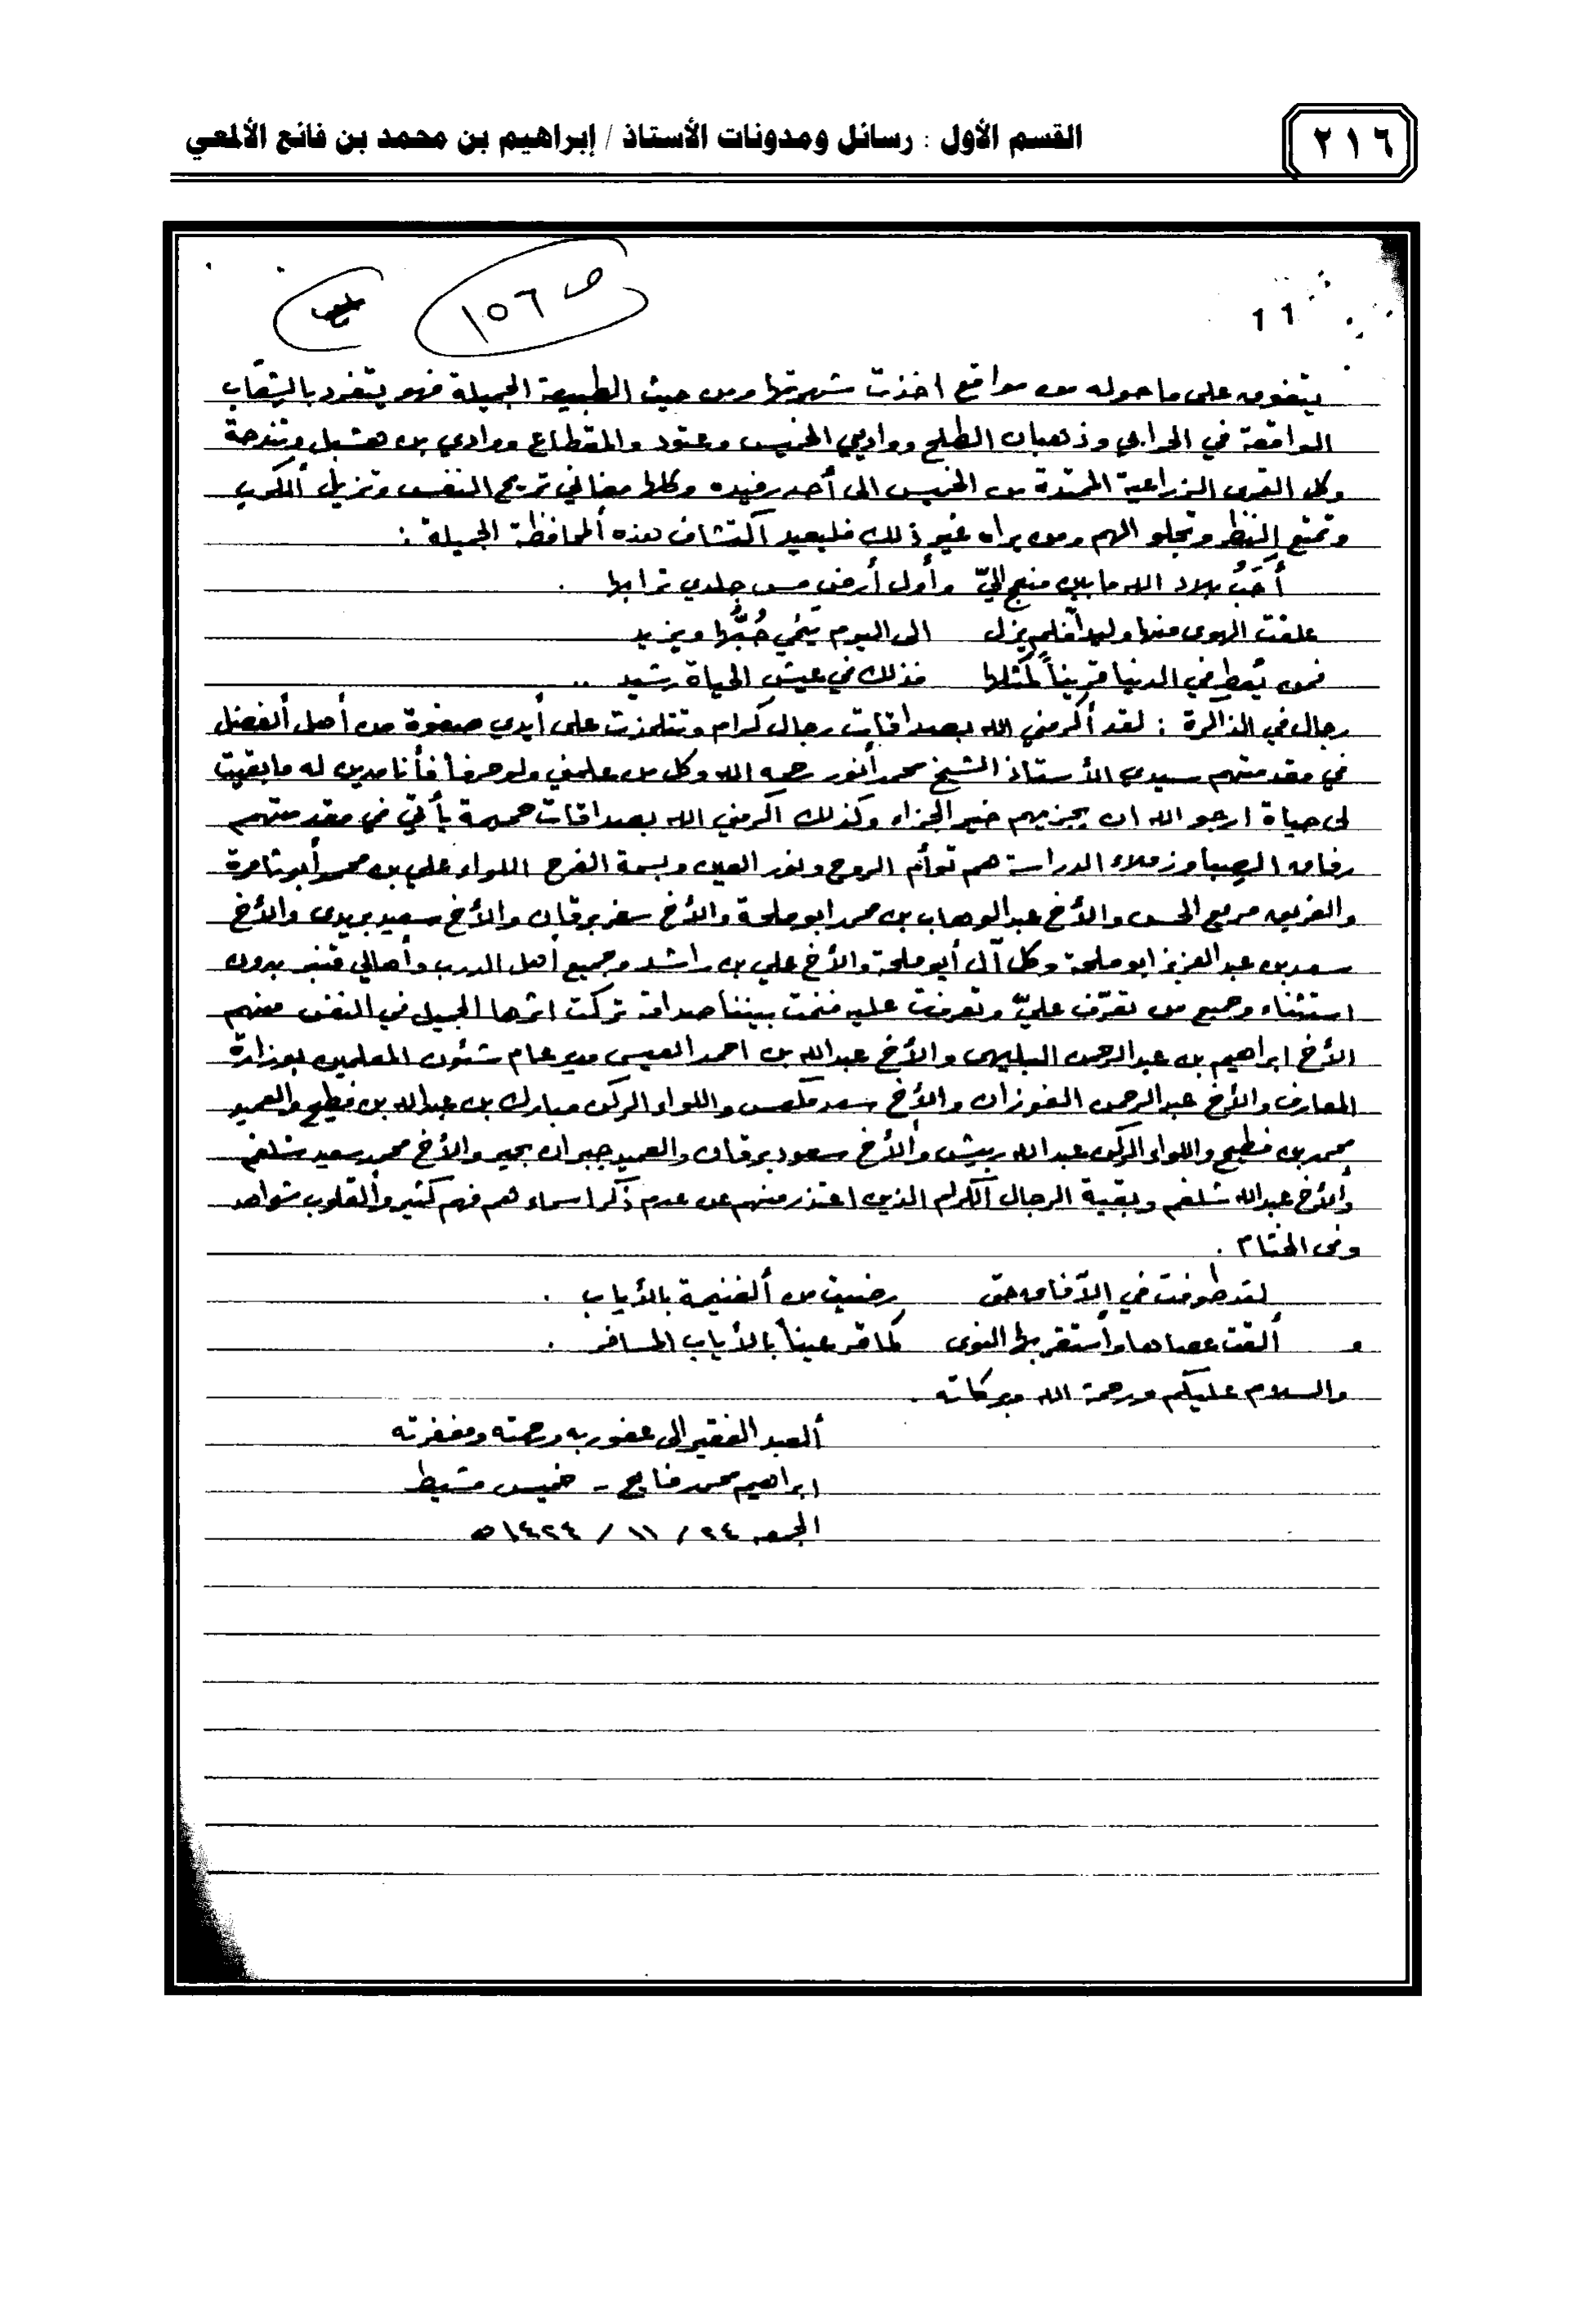 ٢١٦
القسم الأول : رسائل ومدونات الأستاذ / إبراهيم بن محمد بن فائع الألمعي
11
ص ١٥٦
يتفوق على ما حوله من مواقع اخذت شهرتها ومن حيث الطبيعة الجميلة فهو يتفرد بالشعاب
الواقعة في الحرابي وذهبان الطلح ووادي الخميس وعتود والمقطاع ووادي بن هشبل وتندحة
وكل القرى الزراعية الممتدة من الخميس الى أحد رفيده وكلها مغاني تريح النفس وتزيل الكرب
وتمتع النظر وتجلو الهم ومن يراه غير ذلك فليعيد اكتشاف هذه المحافظة الجميلة :
أحَبُ بلاد الله ما بين منبج اليّ وأول أرض مس جلدي ترابها .
علقت الهوى منها وليداً فلم يزل الى اليوم ينمي حُبُّها ويزيد
فمن يُعط في الدنيا قريناً كمثلها فذلك في عيش الحياة رشيد ..
رجال في الذاكرة : لقد أكرمني الله بصداقات رجال كرام وتتلمذت على أيدي صفوة من أهل الفضل
في مقدمتهم سيدي الأستاذ الشيخ محمد أنور رحمه الله وكل من علمني ولو حرفاً فأنا مدين له ما بقيت
لي حياة ارجو الله ان يجزيهم خير الجزاء وكذلك اكرمني الله بصداقات حميمة يأتي في مقدمتهم
رفاق الصبا وزملاء الدراسة هم توأم الروح ونور العين وبسمة الفرح اللواء علي بن محمد أبو ثامرة
والفريق مريع الحسن والأخ عبد الوهاب بن محمد ابو ملحة والأخ سفر برقان والأخ سعيد بريدي والأخ
سعد بن عبد العزيز ابو ملحة وكل آل أبو ملحة والأخ علي بن راشد وجميع أهل الدرب وأهالي قنبر بدون
استثناء وجميع من تعرّف عليّ وتعرفت عليه فنمت بيننا صداقة تركت اثرها الجميل في النفس منهم
الأخ ابراهيم بن عبد الرحمن البليهي والأخ عبد الله بن احمد العيسى مدير عام شئون المعلمين بوزارة
المعارف والأخ عبد الرحمن الفوزان والأخ سعد ملعس واللواء الركن مبارك بن عبد الله بن فطيح والعميد
محمد بن فطيح واللواء الركن عبد الله ريش والأخ سعود برقان والعميد جبران بحير والأخ محمد سعيد شلغم
والأخ عبد الله شلغم وبقية الرجال الكرام الذين اعتذر منهم عن عدم ذكر اسماء هم فهم كثير والقلوب شواهد
وفي الختام .
لقد طوفت في الآفاق حتى رضيت من ألغنيمة بالأياب .
و ألقت عصاها وأستقر بها النوى كما قر عيناً بالأياب المسافر .
والسلام عليكم ورحمة الله وبركاته .
ألعبد الفقير الى عفو ربه ورحمته ومغفرته
ابراهيم محمد فايع - خميس مشيط
الجمعه ٢٤ / ١١ / ١٤٢٤ هـ